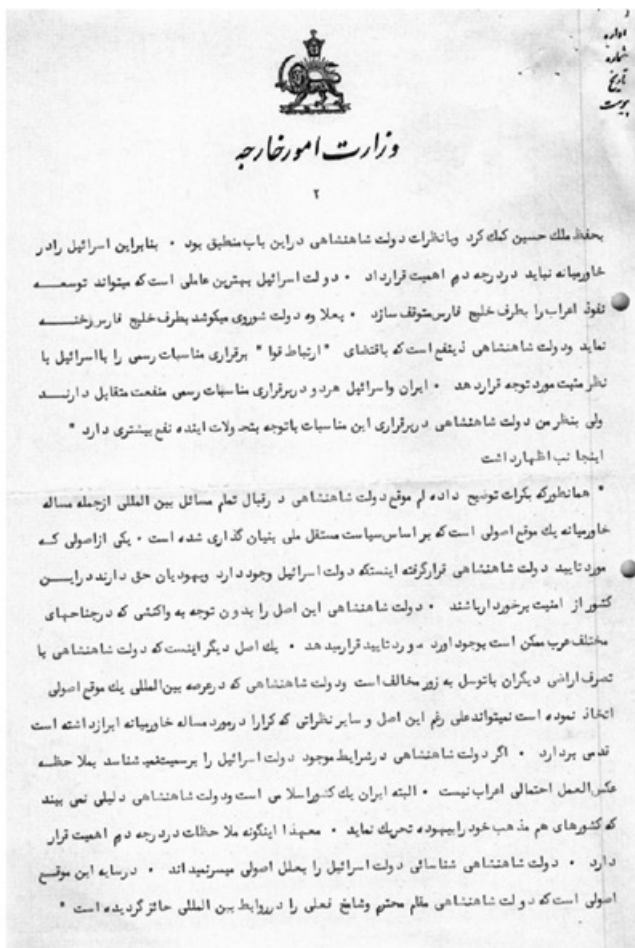 اداره
شماره
تاریخ
پیوست
وزارت امور خارجه
۲
بحفظ ملك حسین کمك کرد وبا نظرات دولت شاهنشاهی دراین باب منطبق بود ٠ بنابراین اسرائیل رادر
خاورمیانه نباید دردرجه دوم اهمیت قرارداد ٠ دولت اسرائیل بهترین عاملی است که میتواند توسعه
نفوذ اعراب را بطرف خلیج فارس متوقف سازد ٠ بعلاوه دولت شوروی میکوشد بطرف خلیج فارس رخنه
نماید ودولت شاهنشاهی ذینفع است که باقتضای " ارتباط قوا " برقراری مناسبات رسمی را بااسرائیل با
نظر مثبت مورد توجه قرار دهد ٠ ایران واسرائیل هردو دربرقراری مناسبات رسمی منفعت متقابل دارند
ولی بنظر من دولت شاهنشاهی دربرقراری این مناسبات باتوجه بتحولات اینده نفع بیشتری دارد "
اینجانب اظهارداشت
" همانطورکه بکرات توضیح داده ام موقع دولت شاهنشاهی درقبال تمام مسائل بین المللی ازجمله مساله
خاورمیانه یك موقع اصولی است که بر اساس سیاست مستقل ملی بنیان گذاری شده است ٠ یکی ازاصولی که
مورد تایید دولت شاهنشاهی قرارگرفته اینستکه دولت اسرائیل وجود دارد ویهودیان حق دارند دراین
کشور از امنیت برخوردارباشند ٠ دولت شاهنشاهی این اصل را بدون توجه به واکنشی که درجناحهای
مختلف عرب ممکن است بوجود اورد مورد تایید قرارمیدهد ٠ یك اصل دیگر اینست که دولت شاهنشاهی با
تصرف اراضی دیگران باتوسل به زور مخالف است ودولت شاهنشاهی که درعرصه بین المللی یك موقع اصولی
اتخاذ نموده است نمیتواند علی رغم این اصل و سایر نظراتی که کرارا درمورد مساله خاورمیانه ابراز داشته است
قدمی بردارد ٠ اگر دولت شاهنشاهی درشرایط موجود دولت اسرائیل را برسمیت نمی شناسد بملاحظه
عکس العمل احتمالی اعراب نیست ٠ البته ایران یك کشور اسلامی است ودولت شاهنشاهی دلیلی نمی بیند
که کشورهای هم مذهب خود را بیهوده تحریك نماید ٠ معهذا اینگونه ملاحظات دردرجه دوم اهمیت قرار
دارد ٠ دولت شاهنشاهی شناسائی دولت اسرائیل را بعلل اصولی میسر نمیداند ٠ درسایه این موقع
اصولی است که دولت شاهنشاهی مقام محترم وشاخ فعلی را درروابط بین المللی حائز گردیده است "